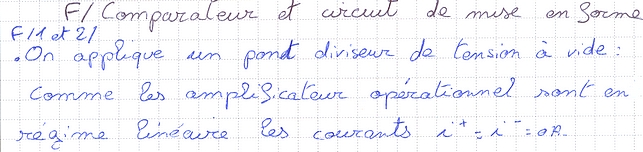 F/ Comparateur et circuit de mise en forme
F/1 et 2/
• On applique un pont diviseur de tension à vide :
Comme les amplificateur opérationnel sont en
régime linéaire les courants i⁺ = i⁻ = 0A.